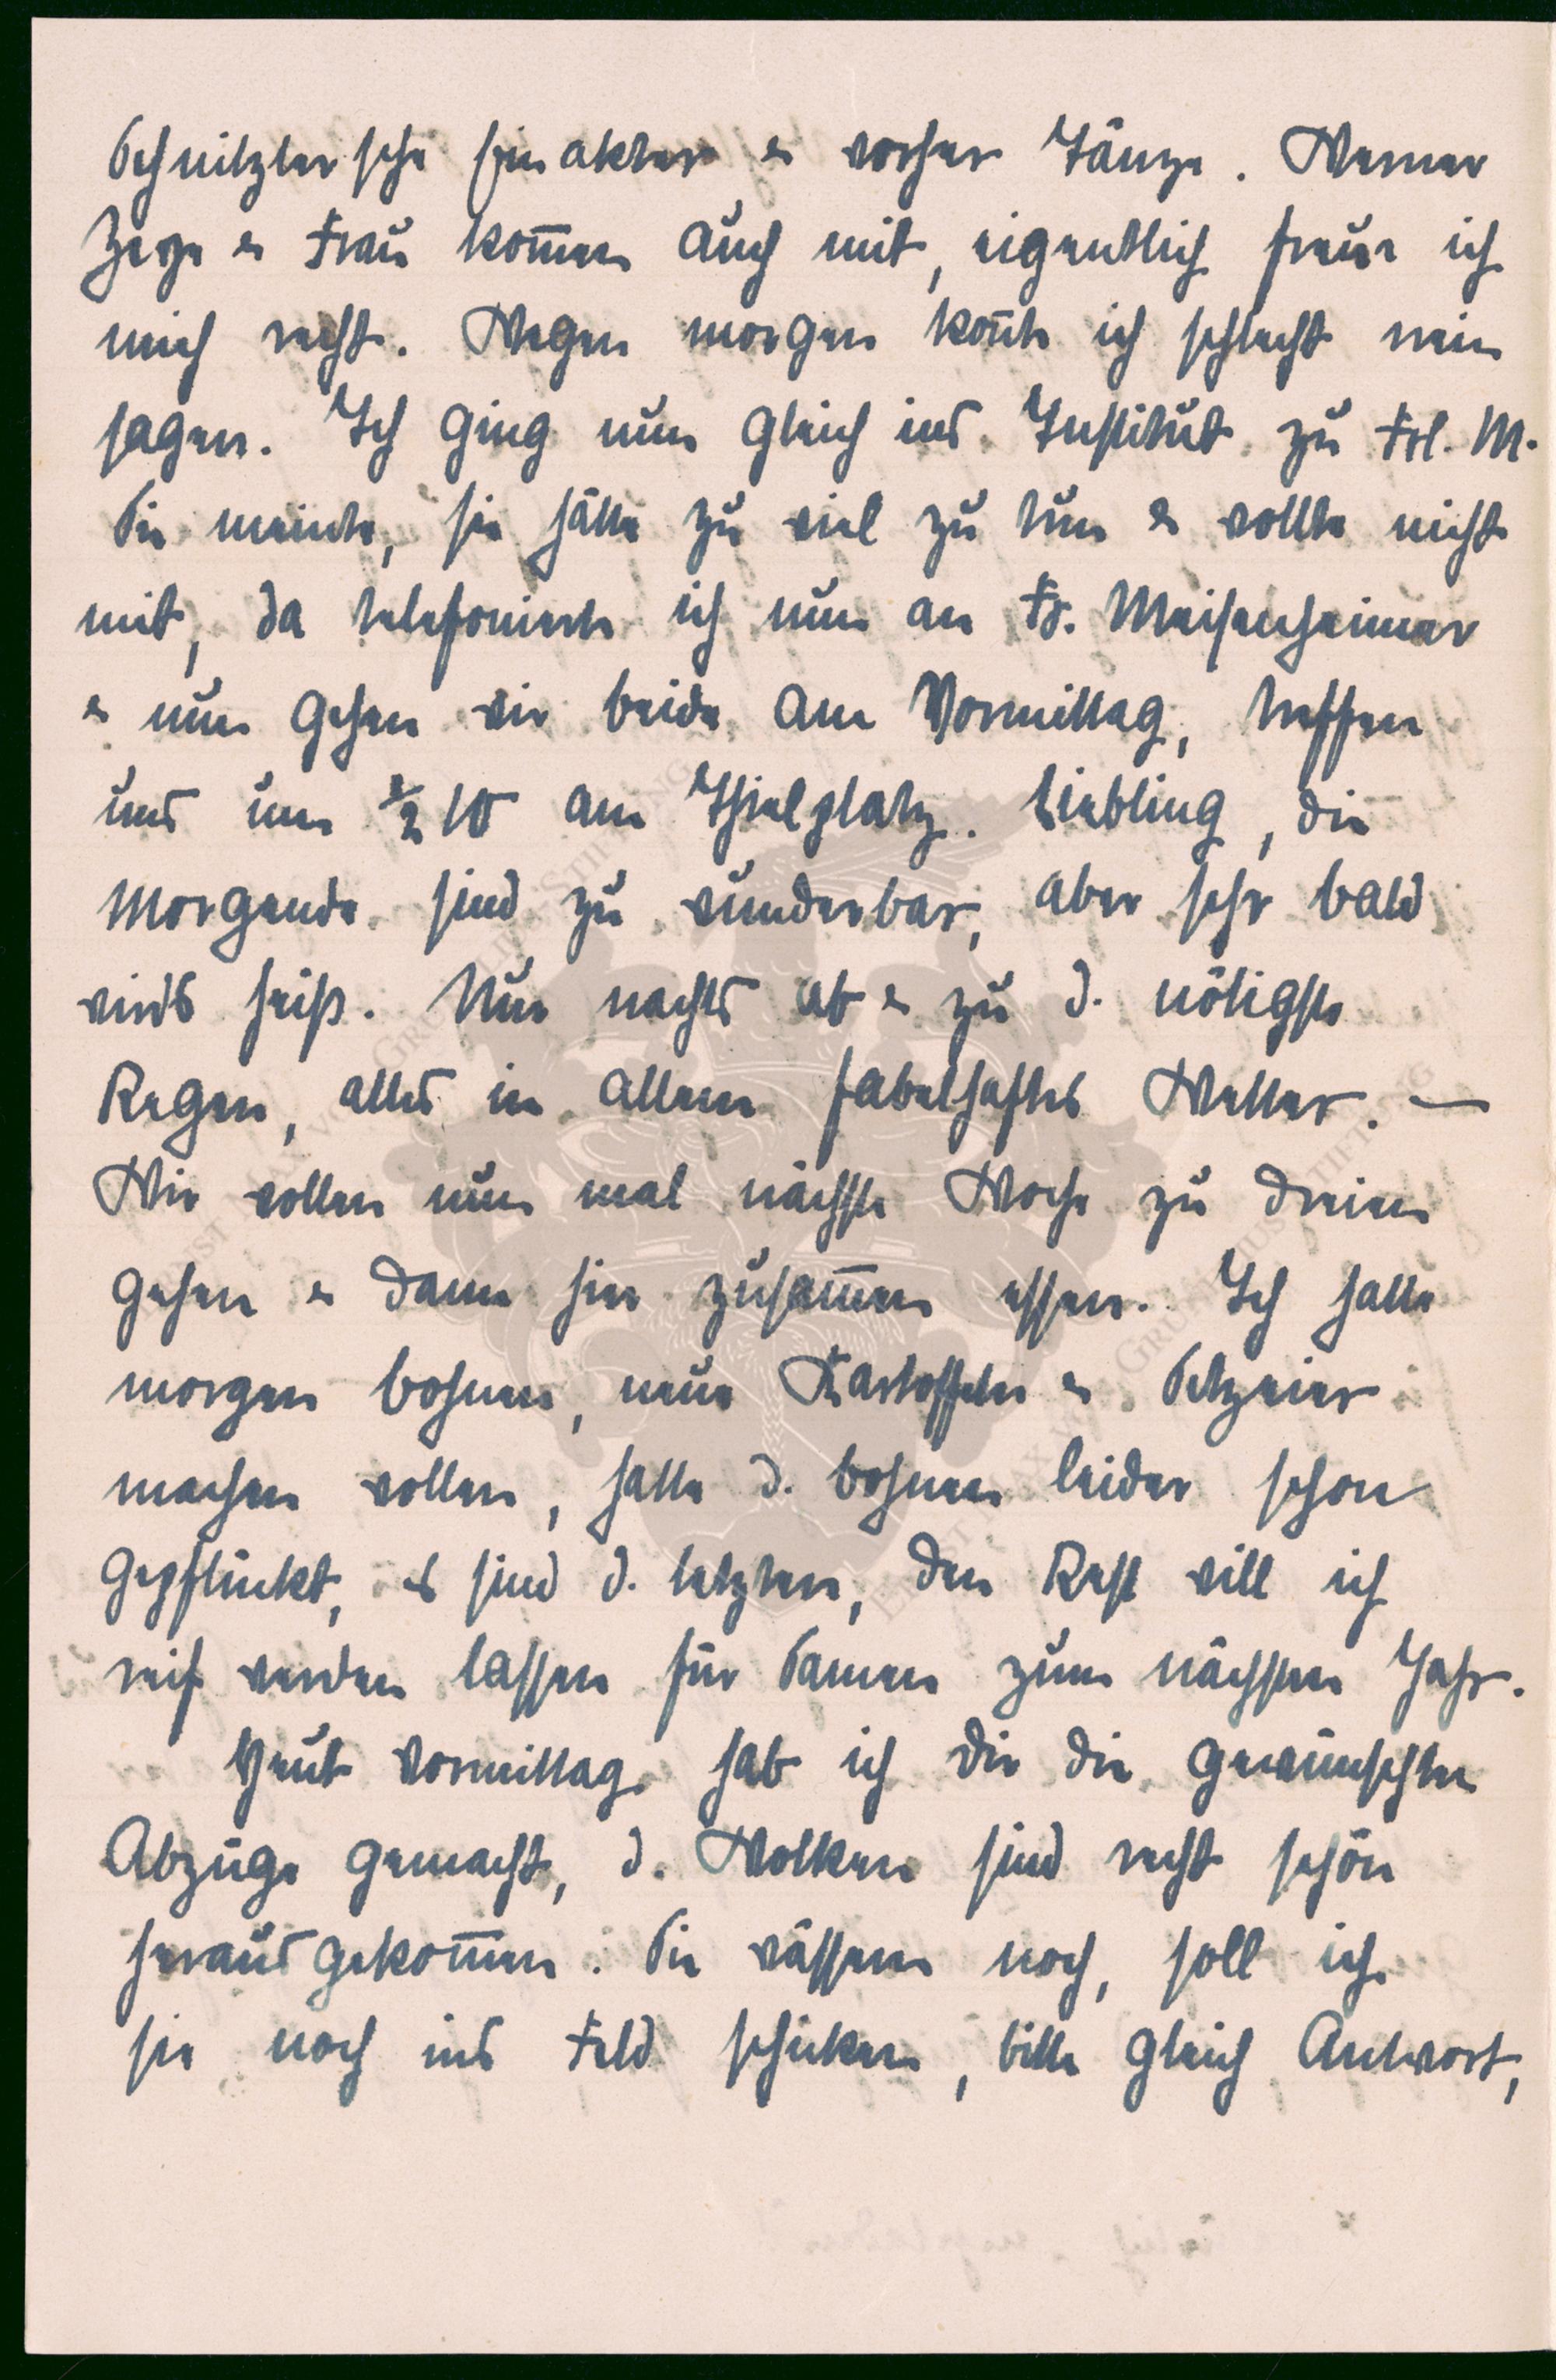 Schnitzlersche Einakter & vorher Tänze. Werner
Zege & Frau kom̅en auch mit, eigentlich freue ich
mich recht. Wegen morgen kon̅te ich schlecht nein
sagen. Ich ging nun gleich ins Institut zu Frl. M.
Sie meinte, sie hätte zu viel zu tun & wollte nicht
mit, da telefonierte ich nun an Fr. Meisenheimer
& nun gehen wir beide am Vormittag, treffen
uns um ½ 10 am Thielplatz. Liebling, die
Morgende sind zu wunderbar, aber sehr bald
wirds heiß. Nur nachts ab & zu d. nötigste
Regen, alles in allem fabelhaftes Wetter. —
Wir wollen nun mal nächste Woche zu dreien
gehen & dann hier zusam̅en essen. Ich hatte
morgen Bohnen, neue Kartoffeln & Setzeier
machen wollen, hatte d. Bohnen leider schon
gepflückt, es sind d. letzten, den Rest will ich
reif werden lassen für Samen zum nächsten Jahr.
Heut Vormittag hab ich Dir die gewünschten
Abzüge gemacht, d. Wolken sind recht schön
herausgekom̅en. Sie wässern noch, soll ich
sie noch ins Feld schicken, bitte gleich Antwort,
ERNST MAX VON GRUNELIUS-STIFTUNG
ERNST MAX VON GRUNELIUS-STIFTUNG